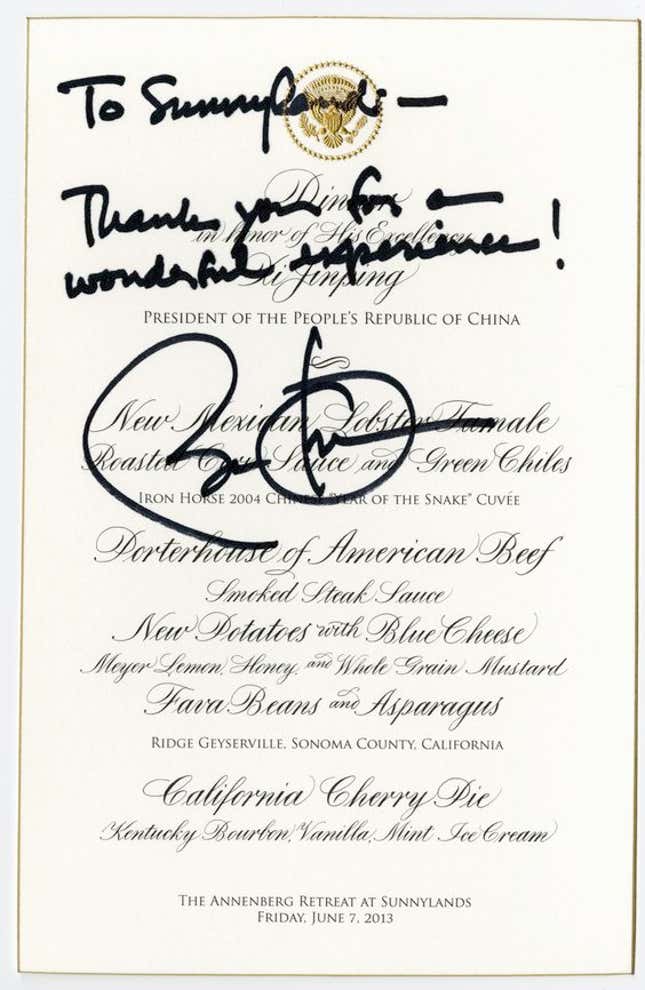 To Sunnylands —
Thank you for a
wonderful experience!
Dinner
in honor of His Excellency
Xi Jinping
President of the People's Republic of China
New Mexican Lobster Tamale
Roasted Corn Sauce and Green Chiles
Iron Horse 2004 Chinese "Year of the Snake" Cuvée
Porterhouse of American Beef
Smoked Steak Sauce
New Potatoes with Blue Cheese
Meyer Lemon, Honey, and Whole Grain Mustard
Fava Beans and Asparagus
Ridge Geyserville, Sonoma County, California
California Cherry Pie
Kentucky Bourbon, Vanilla, Mint Ice Cream
The Annenberg Retreat at Sunnylands
Friday, June 7, 2013